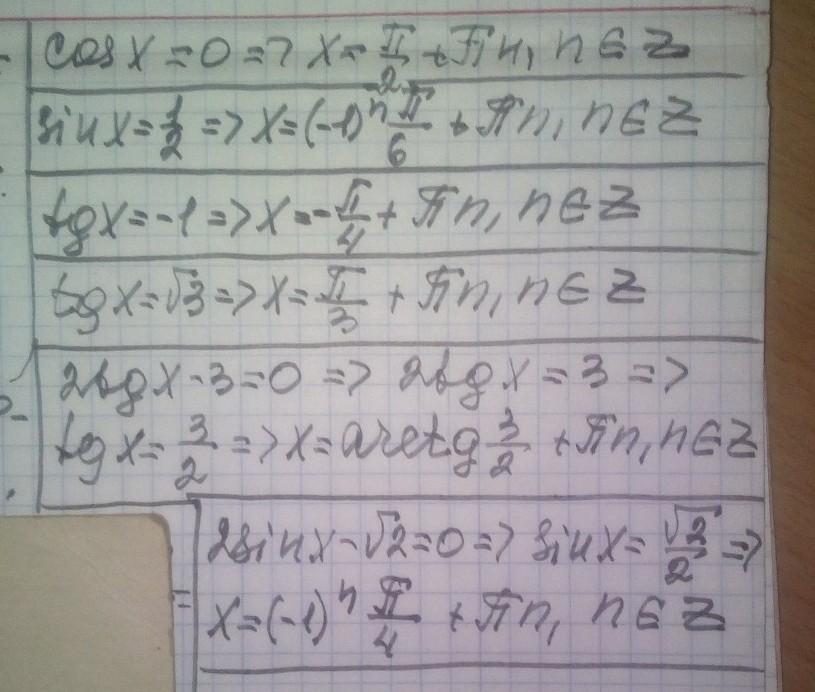 cos x = 0 => x = π/2 + πn, n ∈ Z
sin x = 1/2 => x = (-1)ⁿ π/6 + πn, n ∈ Z
tg x = -1 => x = -π/4 + πn, n ∈ Z
tg x = √3 => x = π/3 + πn, n ∈ Z
2tg x - 3 = 0 => 2tg x = 3 =>
tg x = 3/2 => x = arctg 3/2 + πn, n ∈ Z
2sin x - √2 = 0 => sin x = √2/2 =>
x = (-1)ⁿ π/4 + πn, n ∈ Z